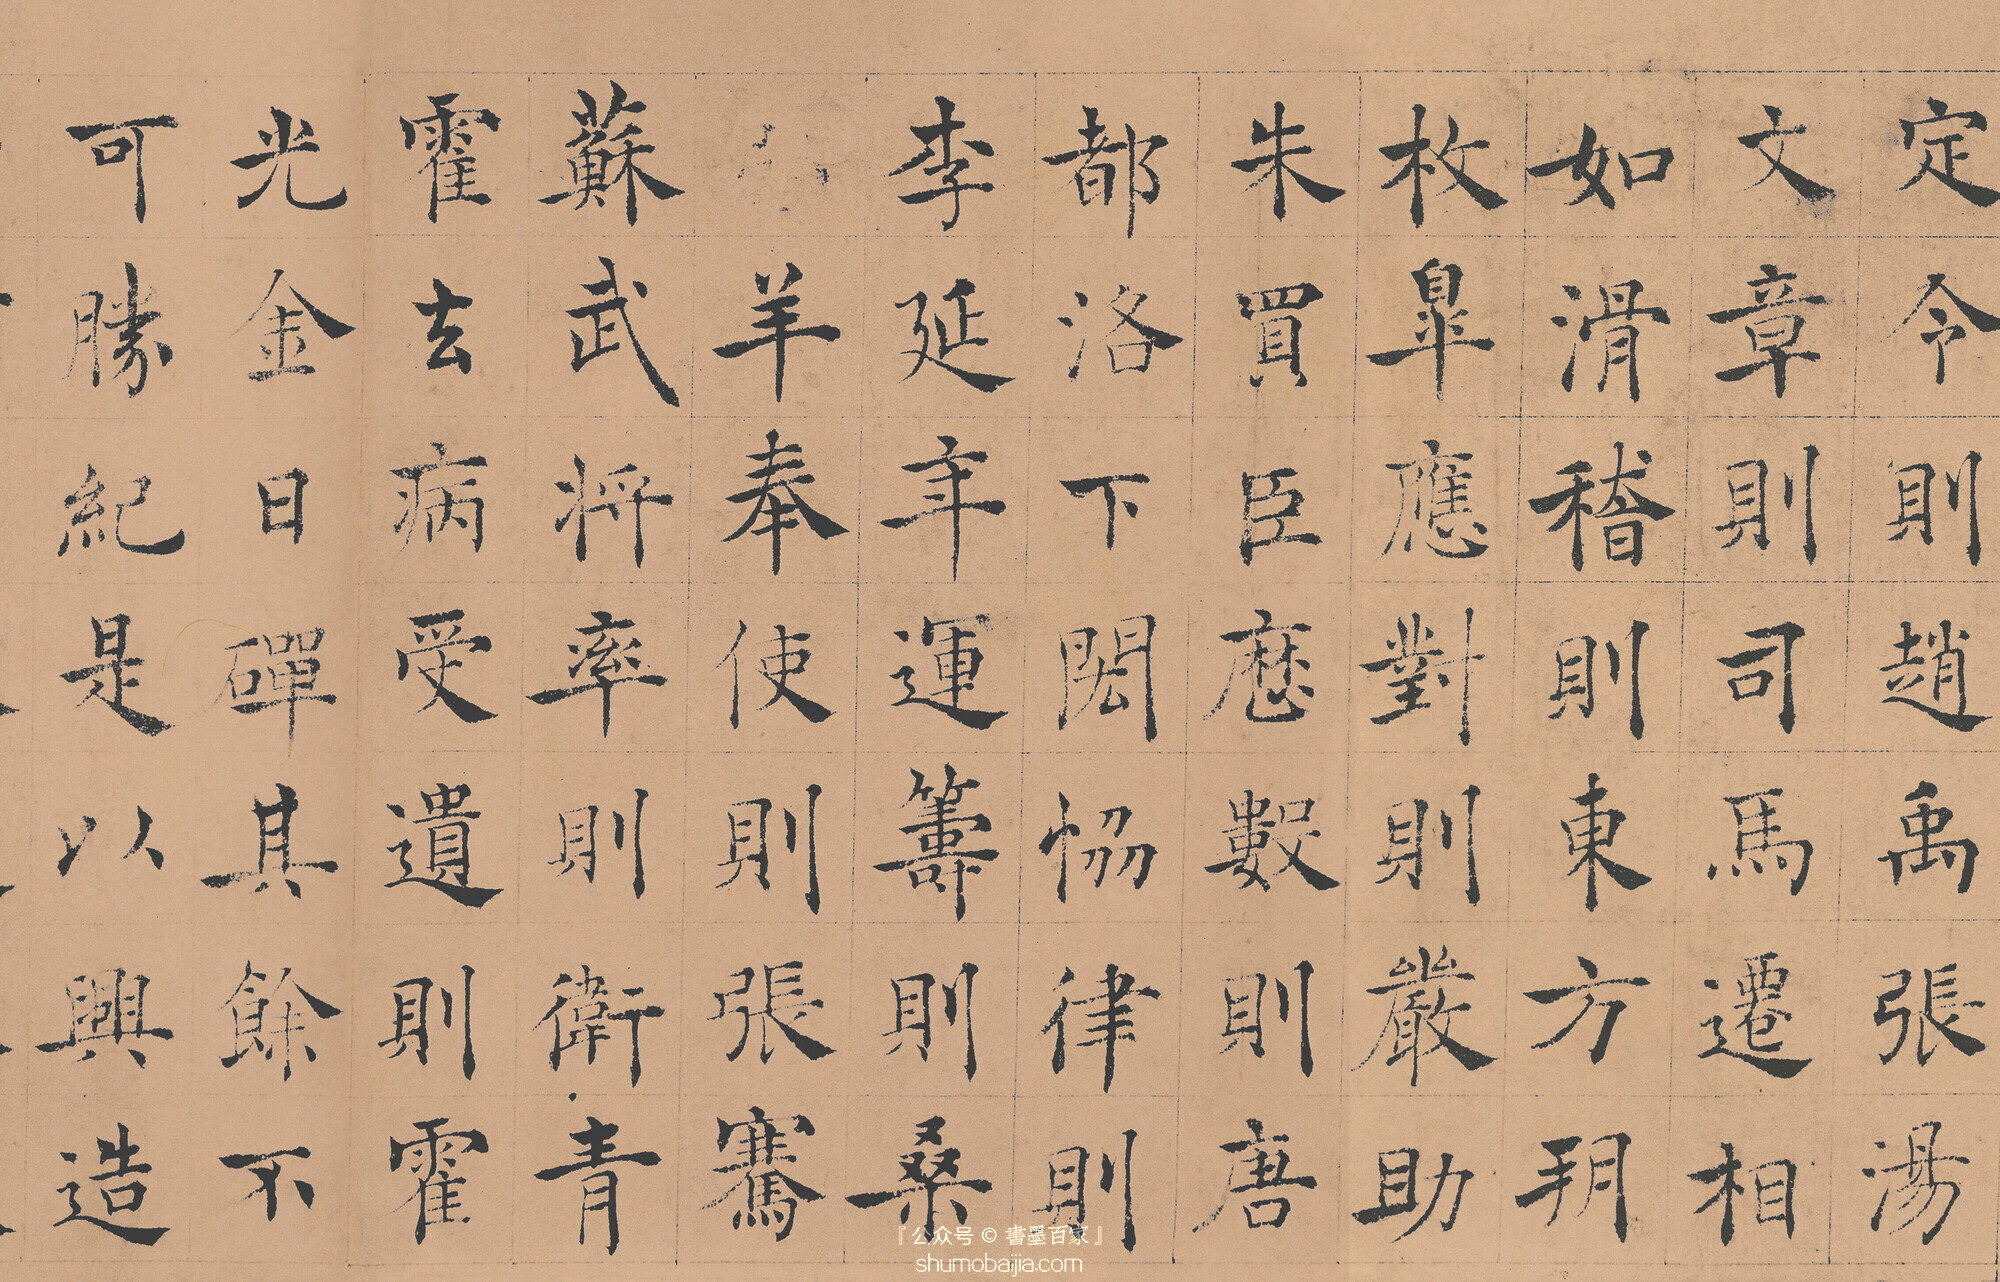 定令則趙禹張湯
文章則司馬遷相
如滑稽則東方朔
枚皐應對則嚴助
朱買臣歷數則唐
都洛下閎恊律則
李延年運籌則桑
羊奉使則張騫
蘇武将率則衛青
霍去病受遺則霍
光金日磾其餘不
可勝紀是以興造
『公众号 © 書墨百家』
shumobaijia.com